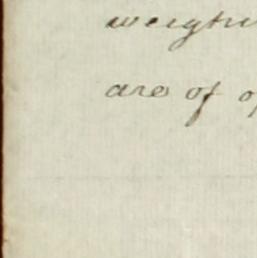 weight
are of o